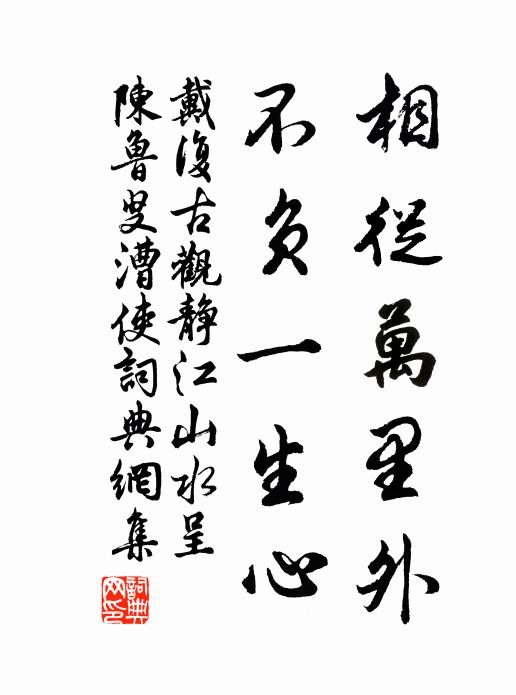 相從萬里外
不負一生心
戴復古觀静江山水呈
陳魯叟漕使詞典網集
詞典網印